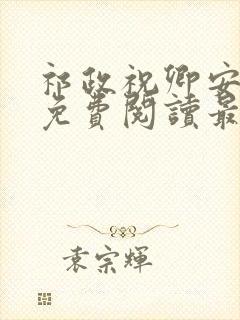 祁政祝卿安
免費閱讀最
袁宗輝